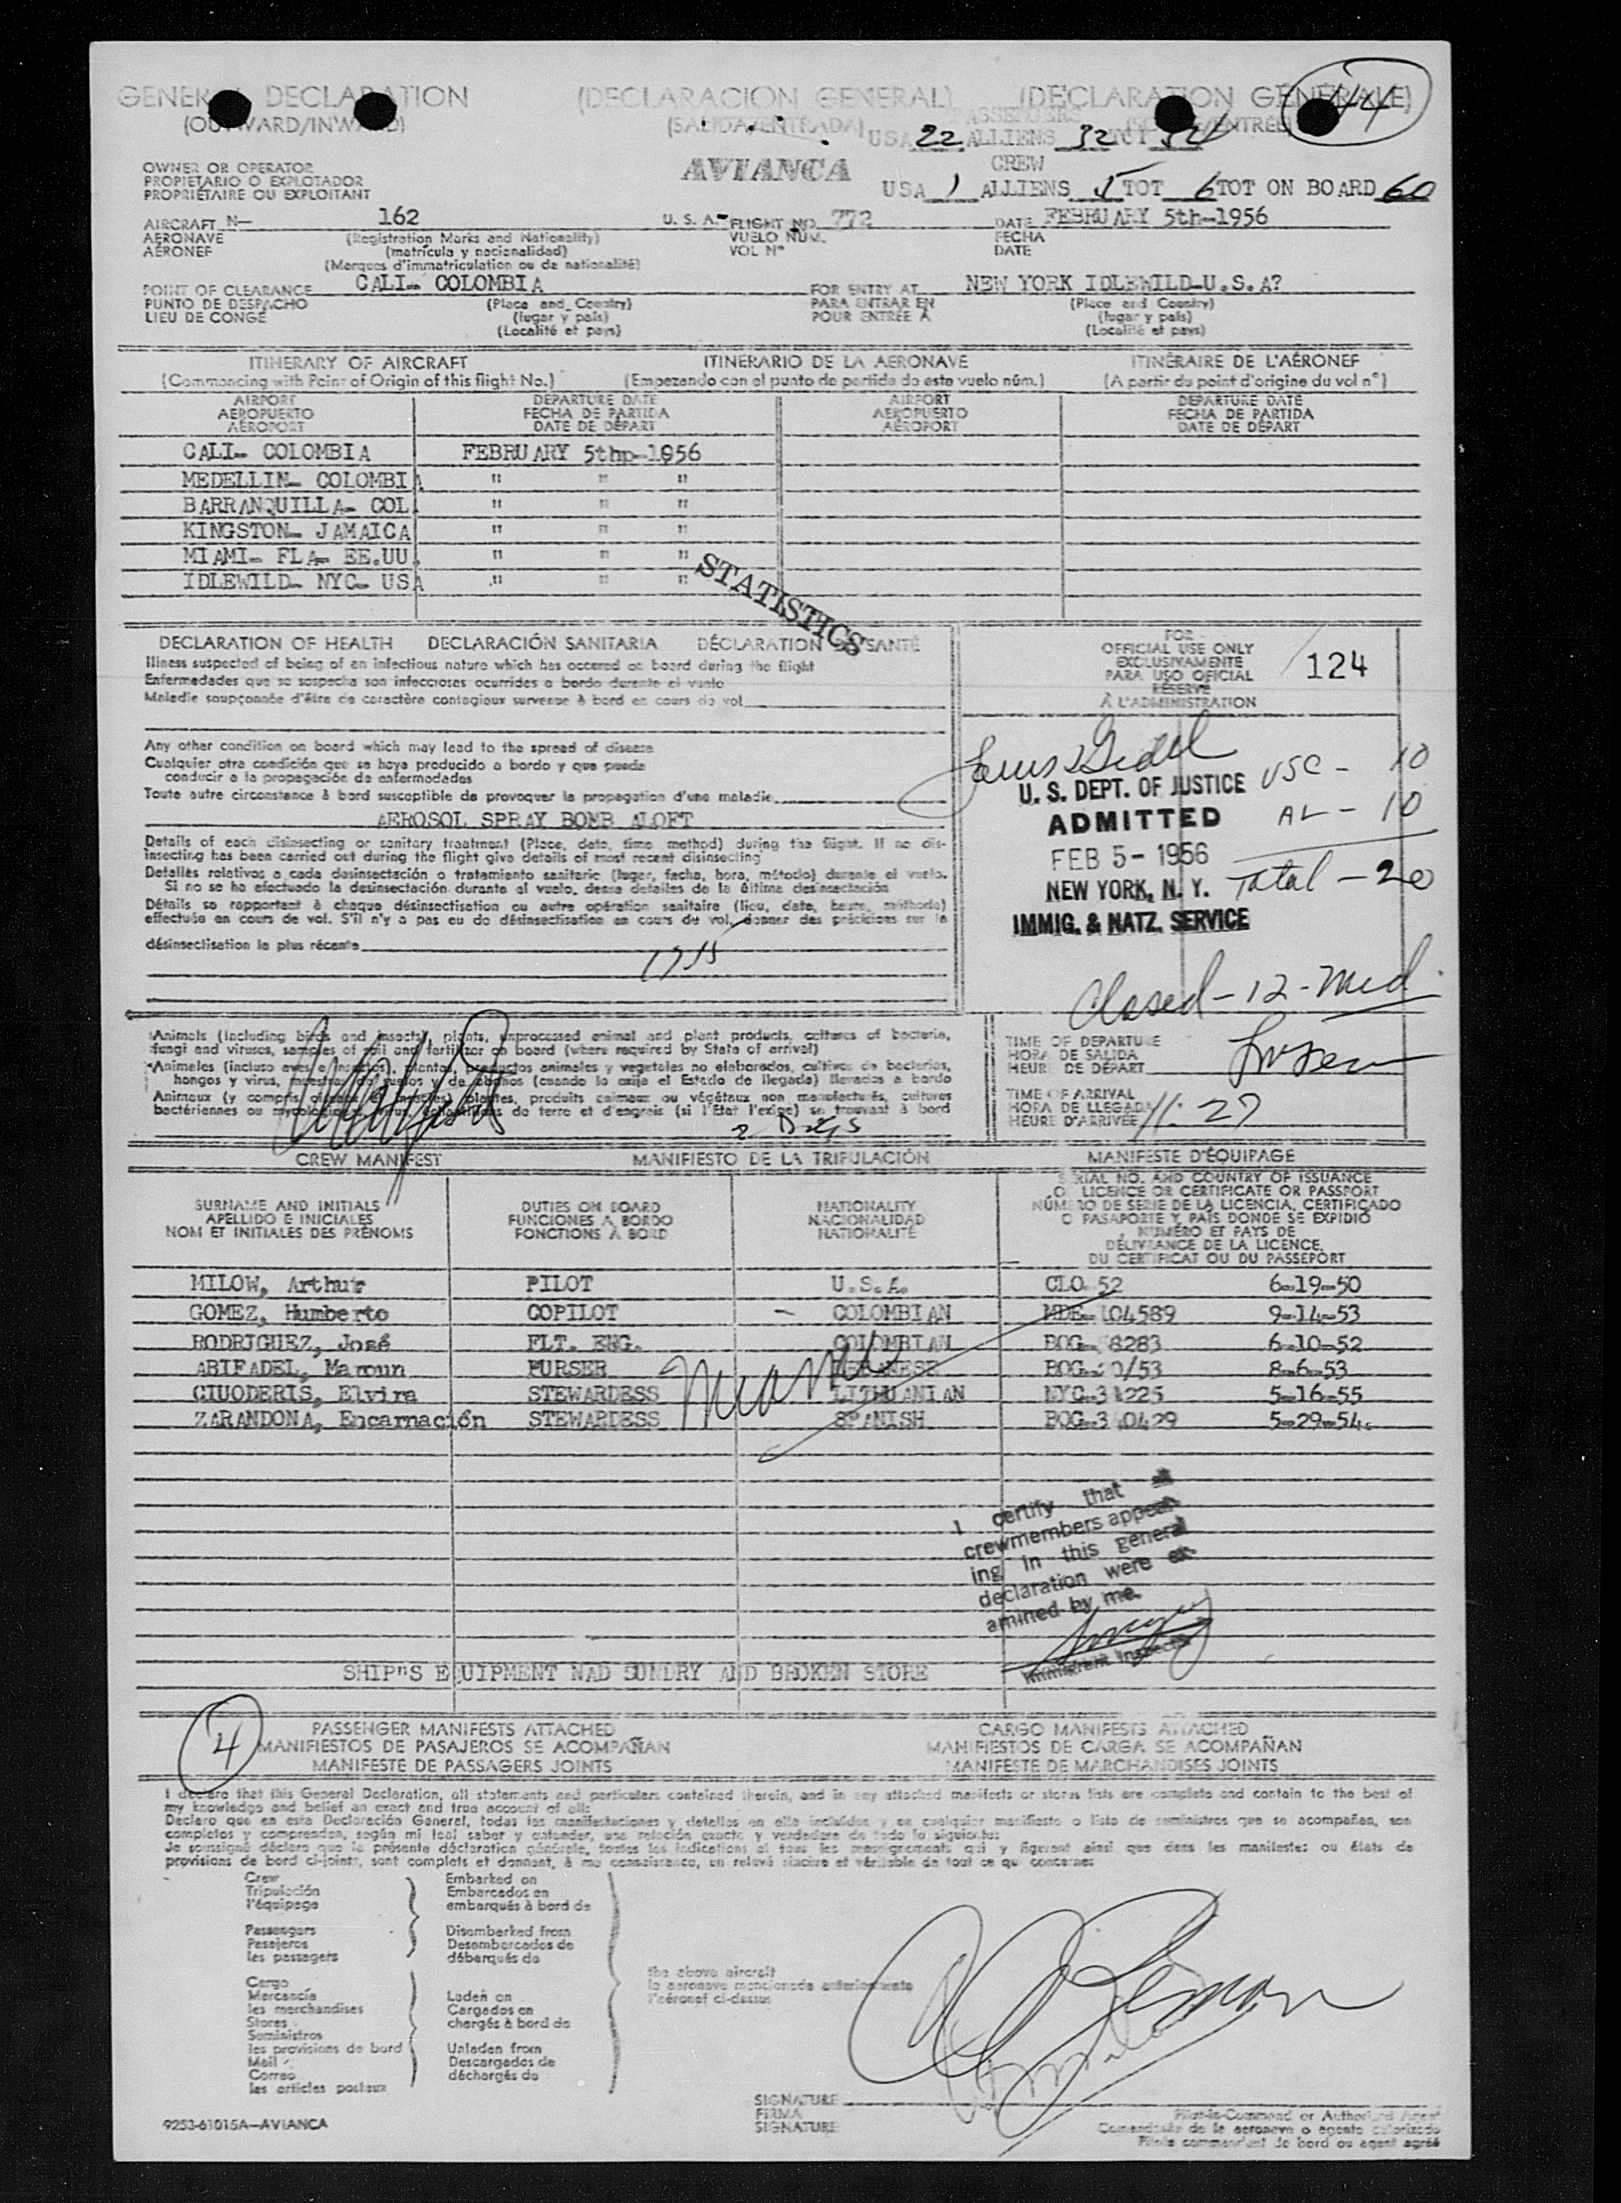 GENERAL DECLARATION (DECLARACION GENERAL) (DÉCLARATION GÉNÉRALE) 44
(OUTWARD/INWARD) (SALIDA/ENTRADA) PASSENGERS
USA 22 ALLIENS 32 TOT 54
OWNER OR OPERATOR AVIANCA CREW
PROPIETARIO O EXPLOTADOR
PROPRIÉTAIRE OU EXPLOITANT USA 1 ALLIENS 5 TOT 6 TOT ON BOARD 60
AIRCRAFT N- 162 U. S. A.- FLIGHT NO. 772 DATE FEBRUARY 5th-1956
AERONAVE (Registration Marks and Nationality) VUELO NÚM. FECHA
AÉRONEF (matrícula y nacionalidad) VOL N° DATE
(Marques d'immatriculation ou de nationalité)
POINT OF CLEARANCE CALI- COLOMBIA FOR ENTRY AT NEW YORK IDLEWILD-U.S.A?
PUNTO DE DESPACHO (Place and Country) PARA ENTRAR EN (Place and Country)
LIEU DE CONGÉ (lugar y país) POUR ENTRÉE À (lugar y país)
(Localité et pays) (Localité et pays)
ITINERARY OF AIRCRAFT ITINERARIO DE LA AERONAVE ITINÉRAIRE DE L'AÉRONEF
(Commencing with Point of Origin of this flight No.) (Empezando con el punto de partida de este vuelo núm.) (A partir du point d'origine du vol n°)
AIRPORT DEPARTURE DATE AIRPORT DEPARTURE DATE
AEROPUERTO FECHA DE PARTIDA AEROPUERTO FECHA DE PARTIDA
AÉROPORT DATE DE DÉPART AÉROPORT DATE DE DÉPART
CALI- COLOMBIA FEBRUARY 5thp-1956
MEDELLIN- COLOMBIA " " "
BARRANQUILLA- COL. " " "
KINGSTON- JAMAICA " " "
MIAMI- FLA- EE.UU. " " "
IDLEWILD- NYC- USA " " "
STATISTICS
DECLARATION OF HEALTH DECLARACIÓN SANITARIA DÉCLARATION DE SANTÉ
Illness suspected of being of an infectious nature which has occured on board during the flight
Enfermedades que se sospecha son infecciosas ocurridas a bordo durante el vuelo
Maladie soupçonnée d'être de caractère contagieux survenue à bord en cours de vol
Any other condition on board which may lead to the spread of disease
Cualquier otra condición que se haya producido a bordo y que pueda
conducir a la propagación de enfermedades
Toute autre circonstance à bord susceptible de provoquer la propagation d'une maladie
AEROSOL SPRAY BOMB ALOFT
Details of each disinsecting or sanitary treatment (Place, date, time method) during the flight. If no dis-
insecting has been carried out during the flight give details of most recent disinsecting
Detalles relativos a cada desinsectación o tratamiento sanitario (lugar, fecha, hora, método) durante el vuelo.
Si no se ha efectuado la desinsectación durante el vuelo, dense detalles de la última desinsectación
Détails se rapportant à chaque désinsectisation ou autre opération sanitaire (lieu, date, heure, méthode)
effectuée en cours de vol. S'il n'y a pas eu de désinsectisation en cours du vol, donner des précisions sur la
désinsectisation la plus récente
FOR
OFFICIAL USE ONLY
EXCLUSIVAMENTE
PARA USO OFICIAL
RÉSERVÉ
À L'ADMINISTRATION
124
U. S. DEPT. OF JUSTICE USC - 10
ADMITTED AL - 10
FEB 5 - 1956
NEW YORK, N. Y. Total - 20
IMMIG. & NATZ. SERVICE
Closed - 12 - Mid.
Animals (including birds and insects), plants, unprocessed animal and plant products, cultures of bacteria,
fungi and viruses, samples of soil and fertilizer on board (where required by State of arrival)
Animales (incluso aves e insectos), plantas, productos animales y vegetales no elaborados, cultivos de bacterias,
hongos y virus, muestras de suelos y de abonos (cuando lo exija el Estado de llegada) llevados a bordo
Animaux (y compris oiseaux et insectes) plantes, produits animaux ou végétaux non manufacturés, cultures
bactériennes ou mycologiques, virus, échantillons de terre et d'engrais (si l'État l'exige) se trouvant à bord
2 Dogs
TIME OF DEPARTURE
HORA DE SALIDA
HEURE DE DÉPART
TIME OF ARRIVAL
HORA DE LLEGADA 11:27
HEURE D'ARRIVÉE
CREW MANIFEST MANIFIESTO DE LA TRIPULACIÓN MANIFESTE D'ÉQUIPAGE
SURNAME AND INITIALS DUTIES ON BOARD NATIONALITY SERIAL NO. AND COUNTRY OF ISSUANCE
APELLIDO E INICIALES FUNCIONES A BORDO NACIONALIDAD OF LICENCE OR CERTIFICATE OR PASSPORT
NOM ET INITIALES DES PRÉNOMS FONCTIONS À BORD NATIONALITÉ NÚMERO DE SERIE DE LA LICENCIA, CERTIFICADO
O PASAPORTE Y PAÍS DONDE SE EXPIDIÓ
NUMÉRO ET PAYS DE
DÉLIVRANCE DE LA LICENCE,
DU CERTIFICAT OU DU PASSEPORT
MILOW, Arthur PILOT U.S.A. CLO 52 6-19-50
GOMEZ, Humberto COPILOT COLOMBIAN MDE-104589 9-14-53
RODRIGUEZ, José FLT. ENG. COLOMBIAN BOG- 8283 6-10-52
ABIFADEL, Maroun PURSER LEBANESE BOG- 0/53 8-6-53
CIUODERIS, Elvira STEWARDESS LITHUANIAN NYC-31225 5-16-55
ZARANDONA, Encarnación STEWARDESS SPANISH BOG-3 0429 5-29-54.
I certify that all
crewmembers appear-
ing in this general
declaration were ex-
amined by me.
Immigrant Inspector
SHIP"S EQUIPMENT NAD SUNDRY AND BROKEN STORE
4 PASSENGER MANIFESTS ATTACHED CARGO MANIFESTS ATTACHED
MANIFIESTOS DE PASAJEROS SE ACOMPAÑAN MANIFIESTOS DE CARGA SE ACOMPAÑAN
MANIFESTE DE PASSAGERS JOINTS MANIFESTE DE MARCHANDISES JOINTS
I declare that this General Declaration, all statements and particulars contained therein, and in any attached manifests or stores lists are complete and contain to the best of
my knowledge and belief an exact and true account of all:
Declaro que en esta Declaración General, todas las manifestaciones y detalles en ella incluídos y en cualquier manifiesto o lista de suministros que se acompañan, son
completos y comprenden, según mi leal saber y entender, una relación exacta y verdadera de todo lo siguiente:
Je soussigné déclare que la présente déclaration générale, toutes les indications et tous les renseignements qui y figurent ainsi que dans les manifestes ou états de
provisions de bord ci-joints, sont complets et donnent, à ma connaissance, un relevé sincère et véritable de tout ce qui concerne:
Crew Embarked on
Tripulación Embarcados en
l'équipage embarqués à bord de
Passengers Disembarked from
Pasajeros Desembarcados de
les passagers débarqués de
Cargo
Mercancía Laden on
les merchandises Cargados en
Stores chargés à bord de
Suministros
les provisions de bord Unladen from
Mail Descargados de
Correo déchargés de
les articles postaux
the above aircraft
la aeronave mencionada anteriormente
l'aéronef ci-dessus
SIGNATURE
FIRMA
SIGNATURE
Pilot-in-Command or Authorized Agent
Comandante de la aeronave o agente autorizado
Pilote commandant de bord ou agent agréé
9253-61015A—AVIANCA